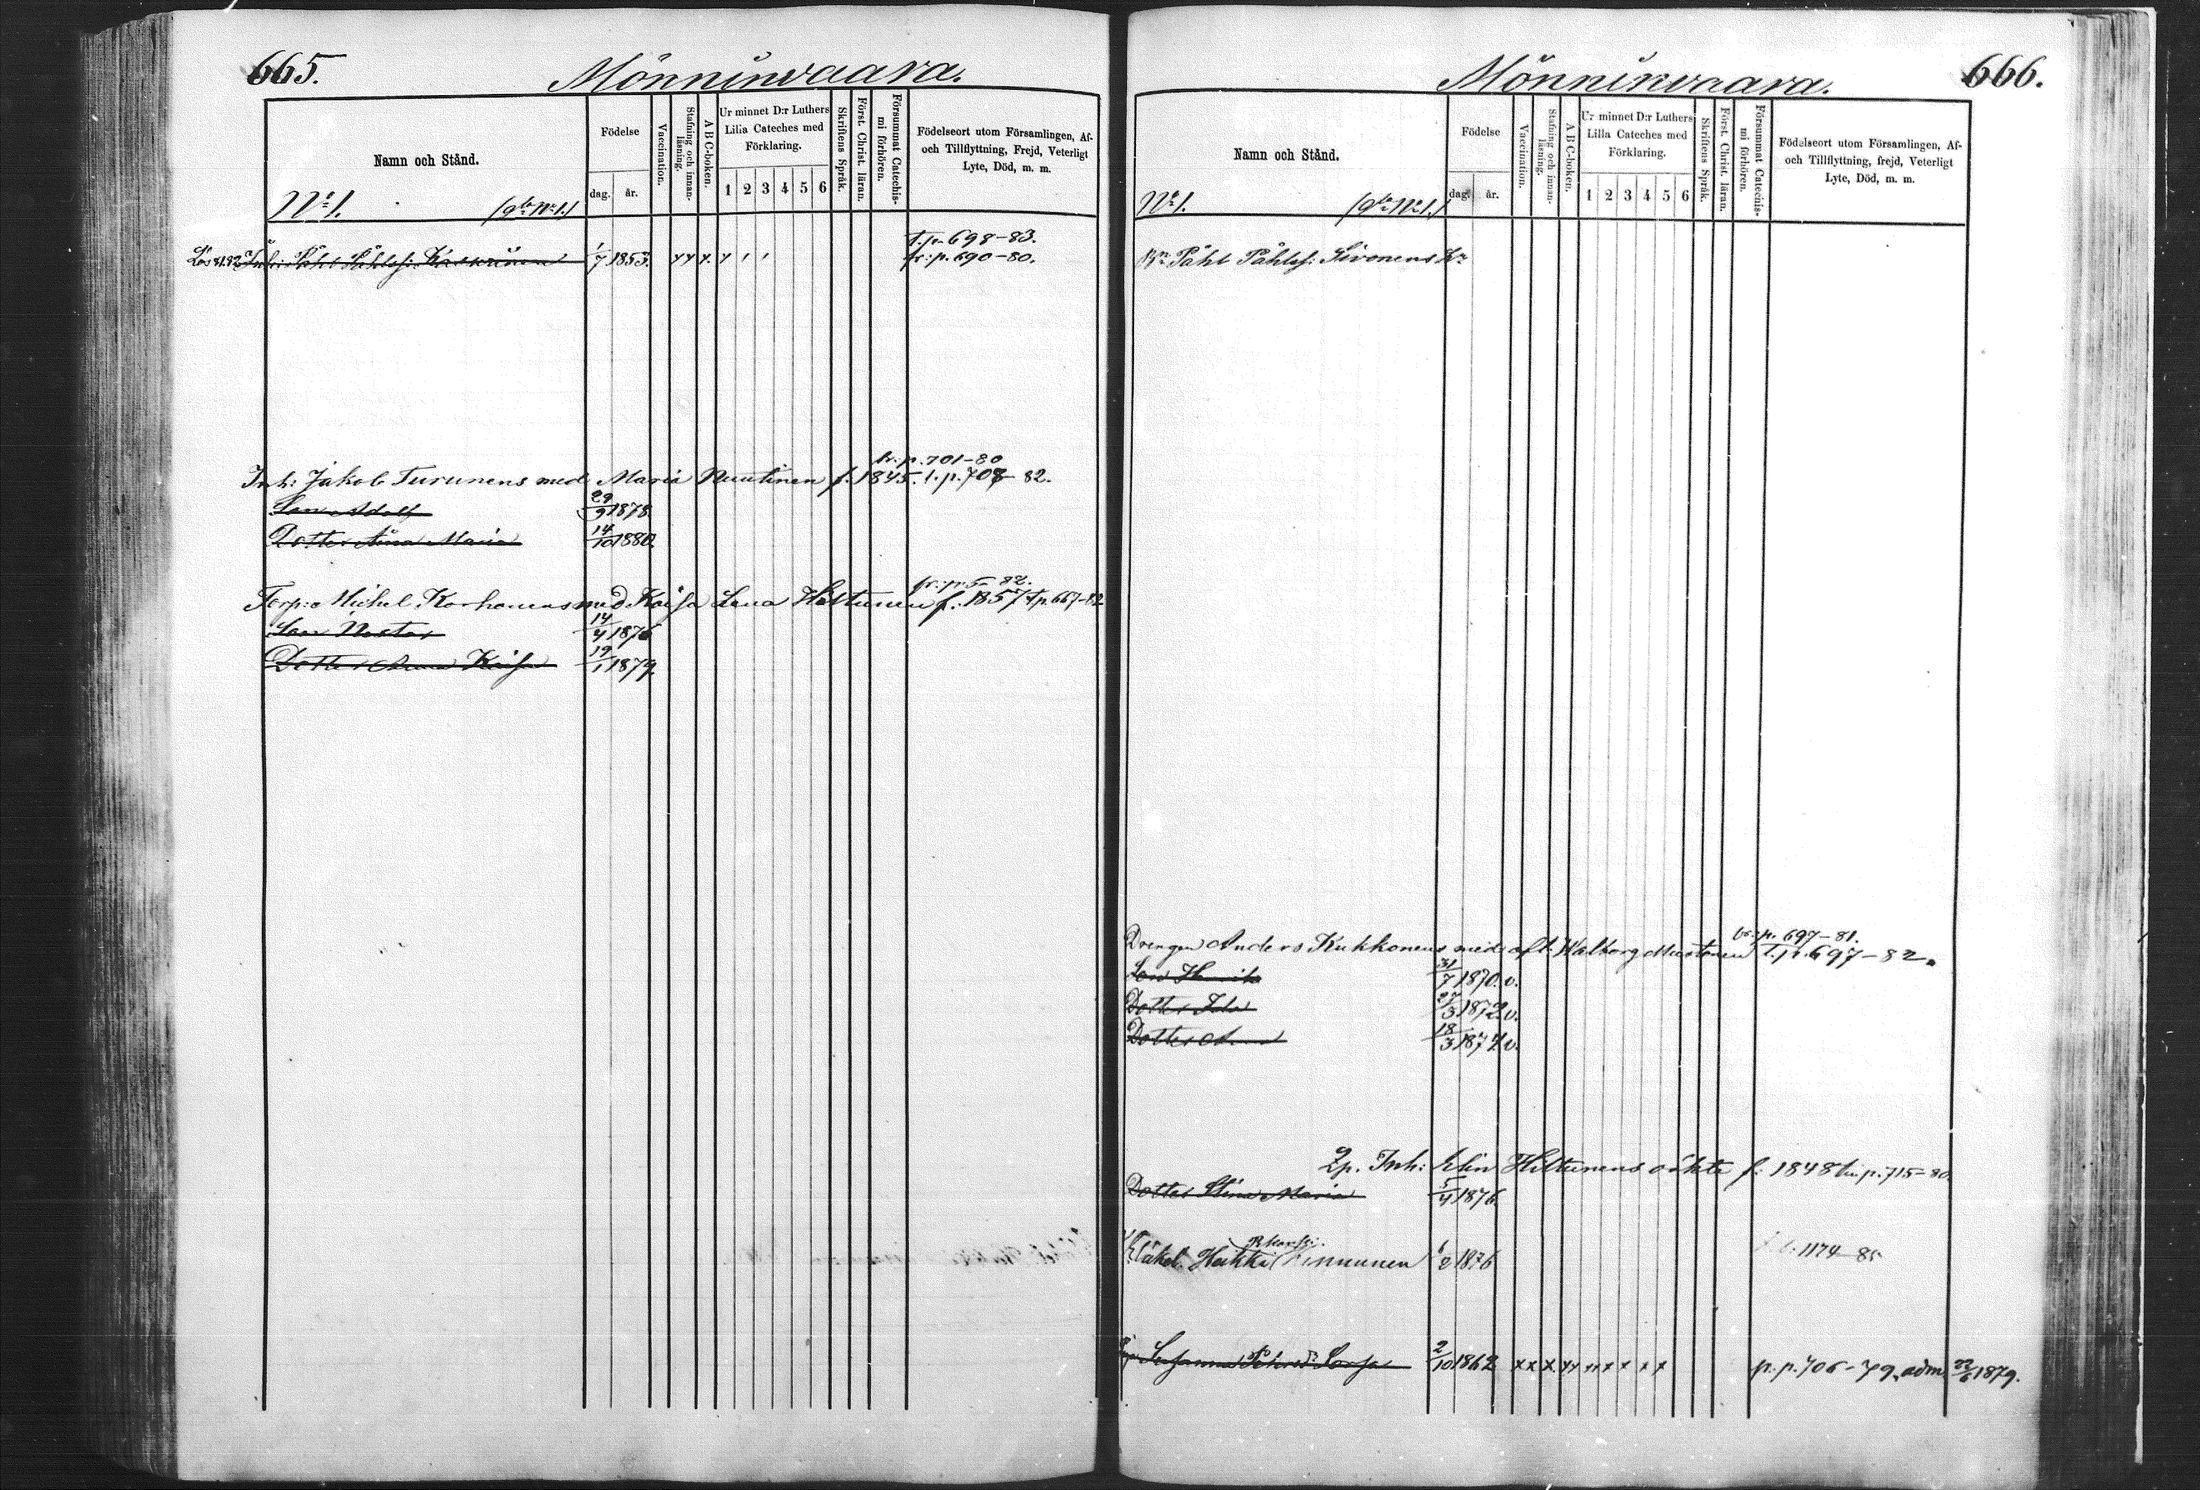 665.
Mönninvaara.
Namn och Stånd.
Födelse
dag.
år.
Vaccination.
Stafning och innan-läsning.
A B C-boken.
Ur minnet D:r Luthers
Lilla Cateches med
Förklaring.
1 2 3 4 5 6
Skriftens Språk.
Först. Christ. läran.
Försummat Catechis-
mi förhören.
Födelseort utom Församlingen, Af-
och Tillflyttning, Frejd, Veterligt
Lyte, Död, m. m.
No 1.
t. p. 698-83.
Inh: Påhl Påhlss: 1/7 1853. fr. p. 690-80.
fr. p. 701-80
Inh: Jakob Turunens med Maria Nuutinen f. 1845. t. p. 708-82.
Son Adolf 29/9 1878.
Dotter Anna Maria 14/10 1880.
fr: p. 5-82.
Torp: Michel Korhonens med Kaisa Lena Hiltunen f. 1857 t. p. 667-82
Son Nestor 14/4 1876
Dotter Anna Kaisa 19/1 1879.
666.
Mönninvaara.
Namn och Stånd.
Födelse
dag.
år.
Vaccination.
Stafning och innan-läsning.
A B C-boken.
Ur minnet D:r Luthers
Lilla Cateches med
Förklaring.
1 2 3 4 5 6
Skriftens Språk.
Först. Christ. läran.
Försummat Catechis-
mi förhören.
Födelseort utom Församlingen, Af-
och Tillflyttning, frejd, Veterligt
Lyte, Död, m. m.
No 1.
Påhl Påhlss: Sivonens
fr: p. 697-81.
Drengen Anders Kukkonens med afl. Walborg Mustonen t. p. 697-82.
Son Henrik 31/7 1870. v.
Dotter Ida 27/3 1872 v.
Dotter Anna 18/3 1877 v.
Lp. Inh: Elin Hiltunens oäkta f. 1848 fr. p. 715-80.
Dotter Stina Maria 5/4 1876.
Heikki Kinnunen 1/2 1876 1174-85
Susanna 2/10 1862 x x x x x p. p. 706-79, adm 22/6 1879.